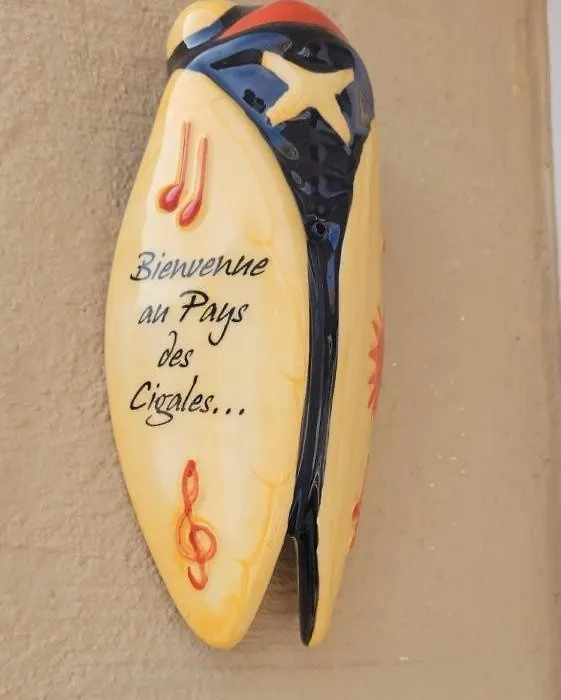 Bienvenue
au Pays
des
Cigales...